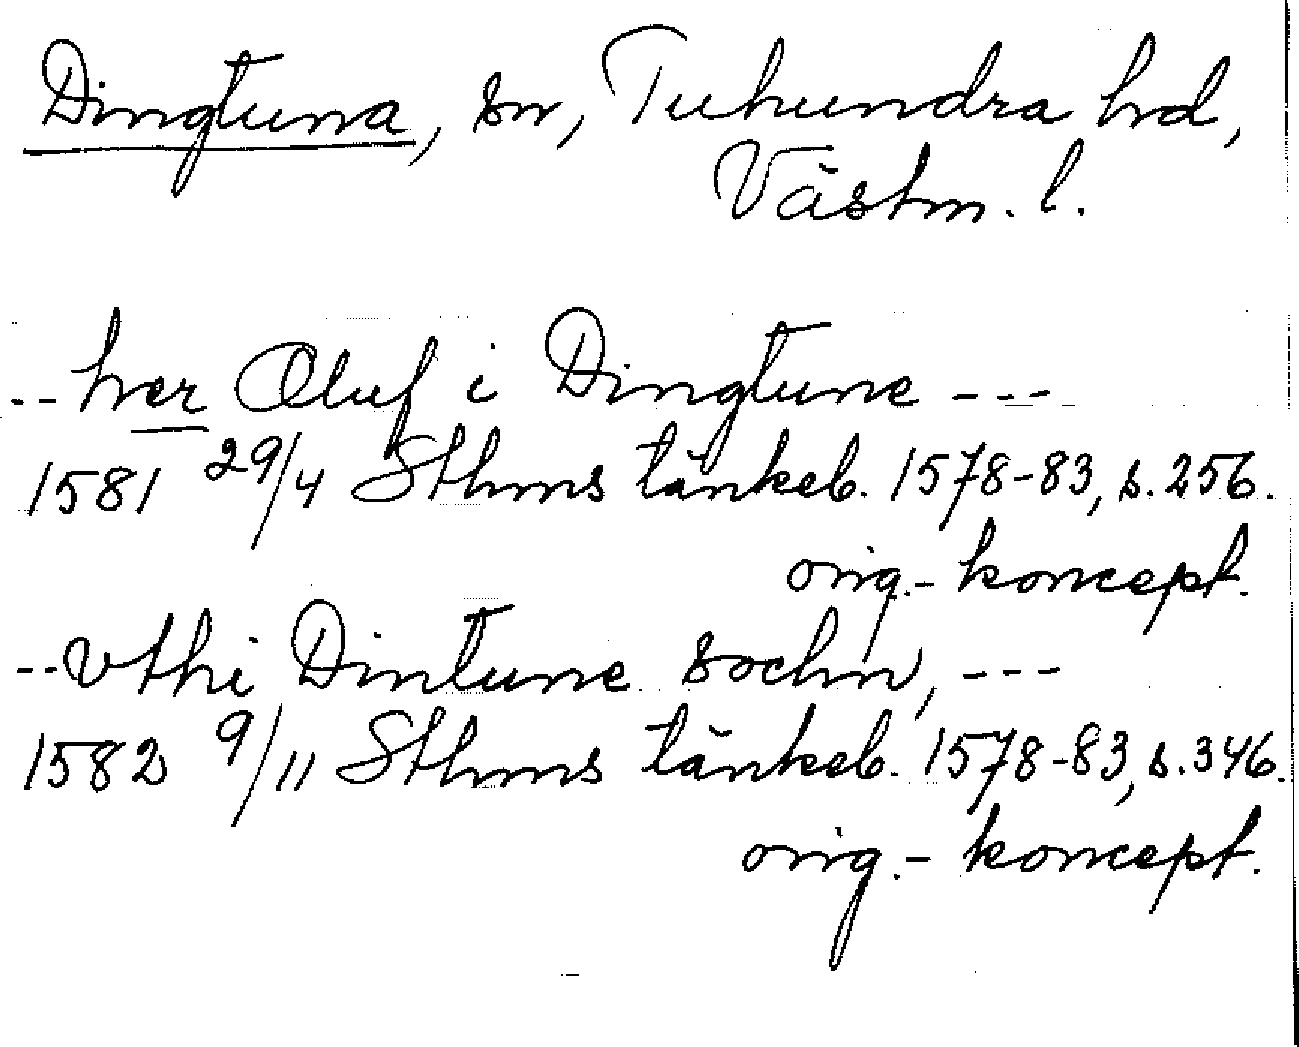 Dingtuna, sn, Tuhundra hrd,
Västm. l.
-- her Oluf i Dingtune ---
1581 29/4 Sthms tänkeb. 1578-83, s. 256.
orig.- koncept.
-- vthi Dintune sochn, ---
1582 9/11 Sthms tänkeb. 1578-83, s. 346.
orig.- koncept.